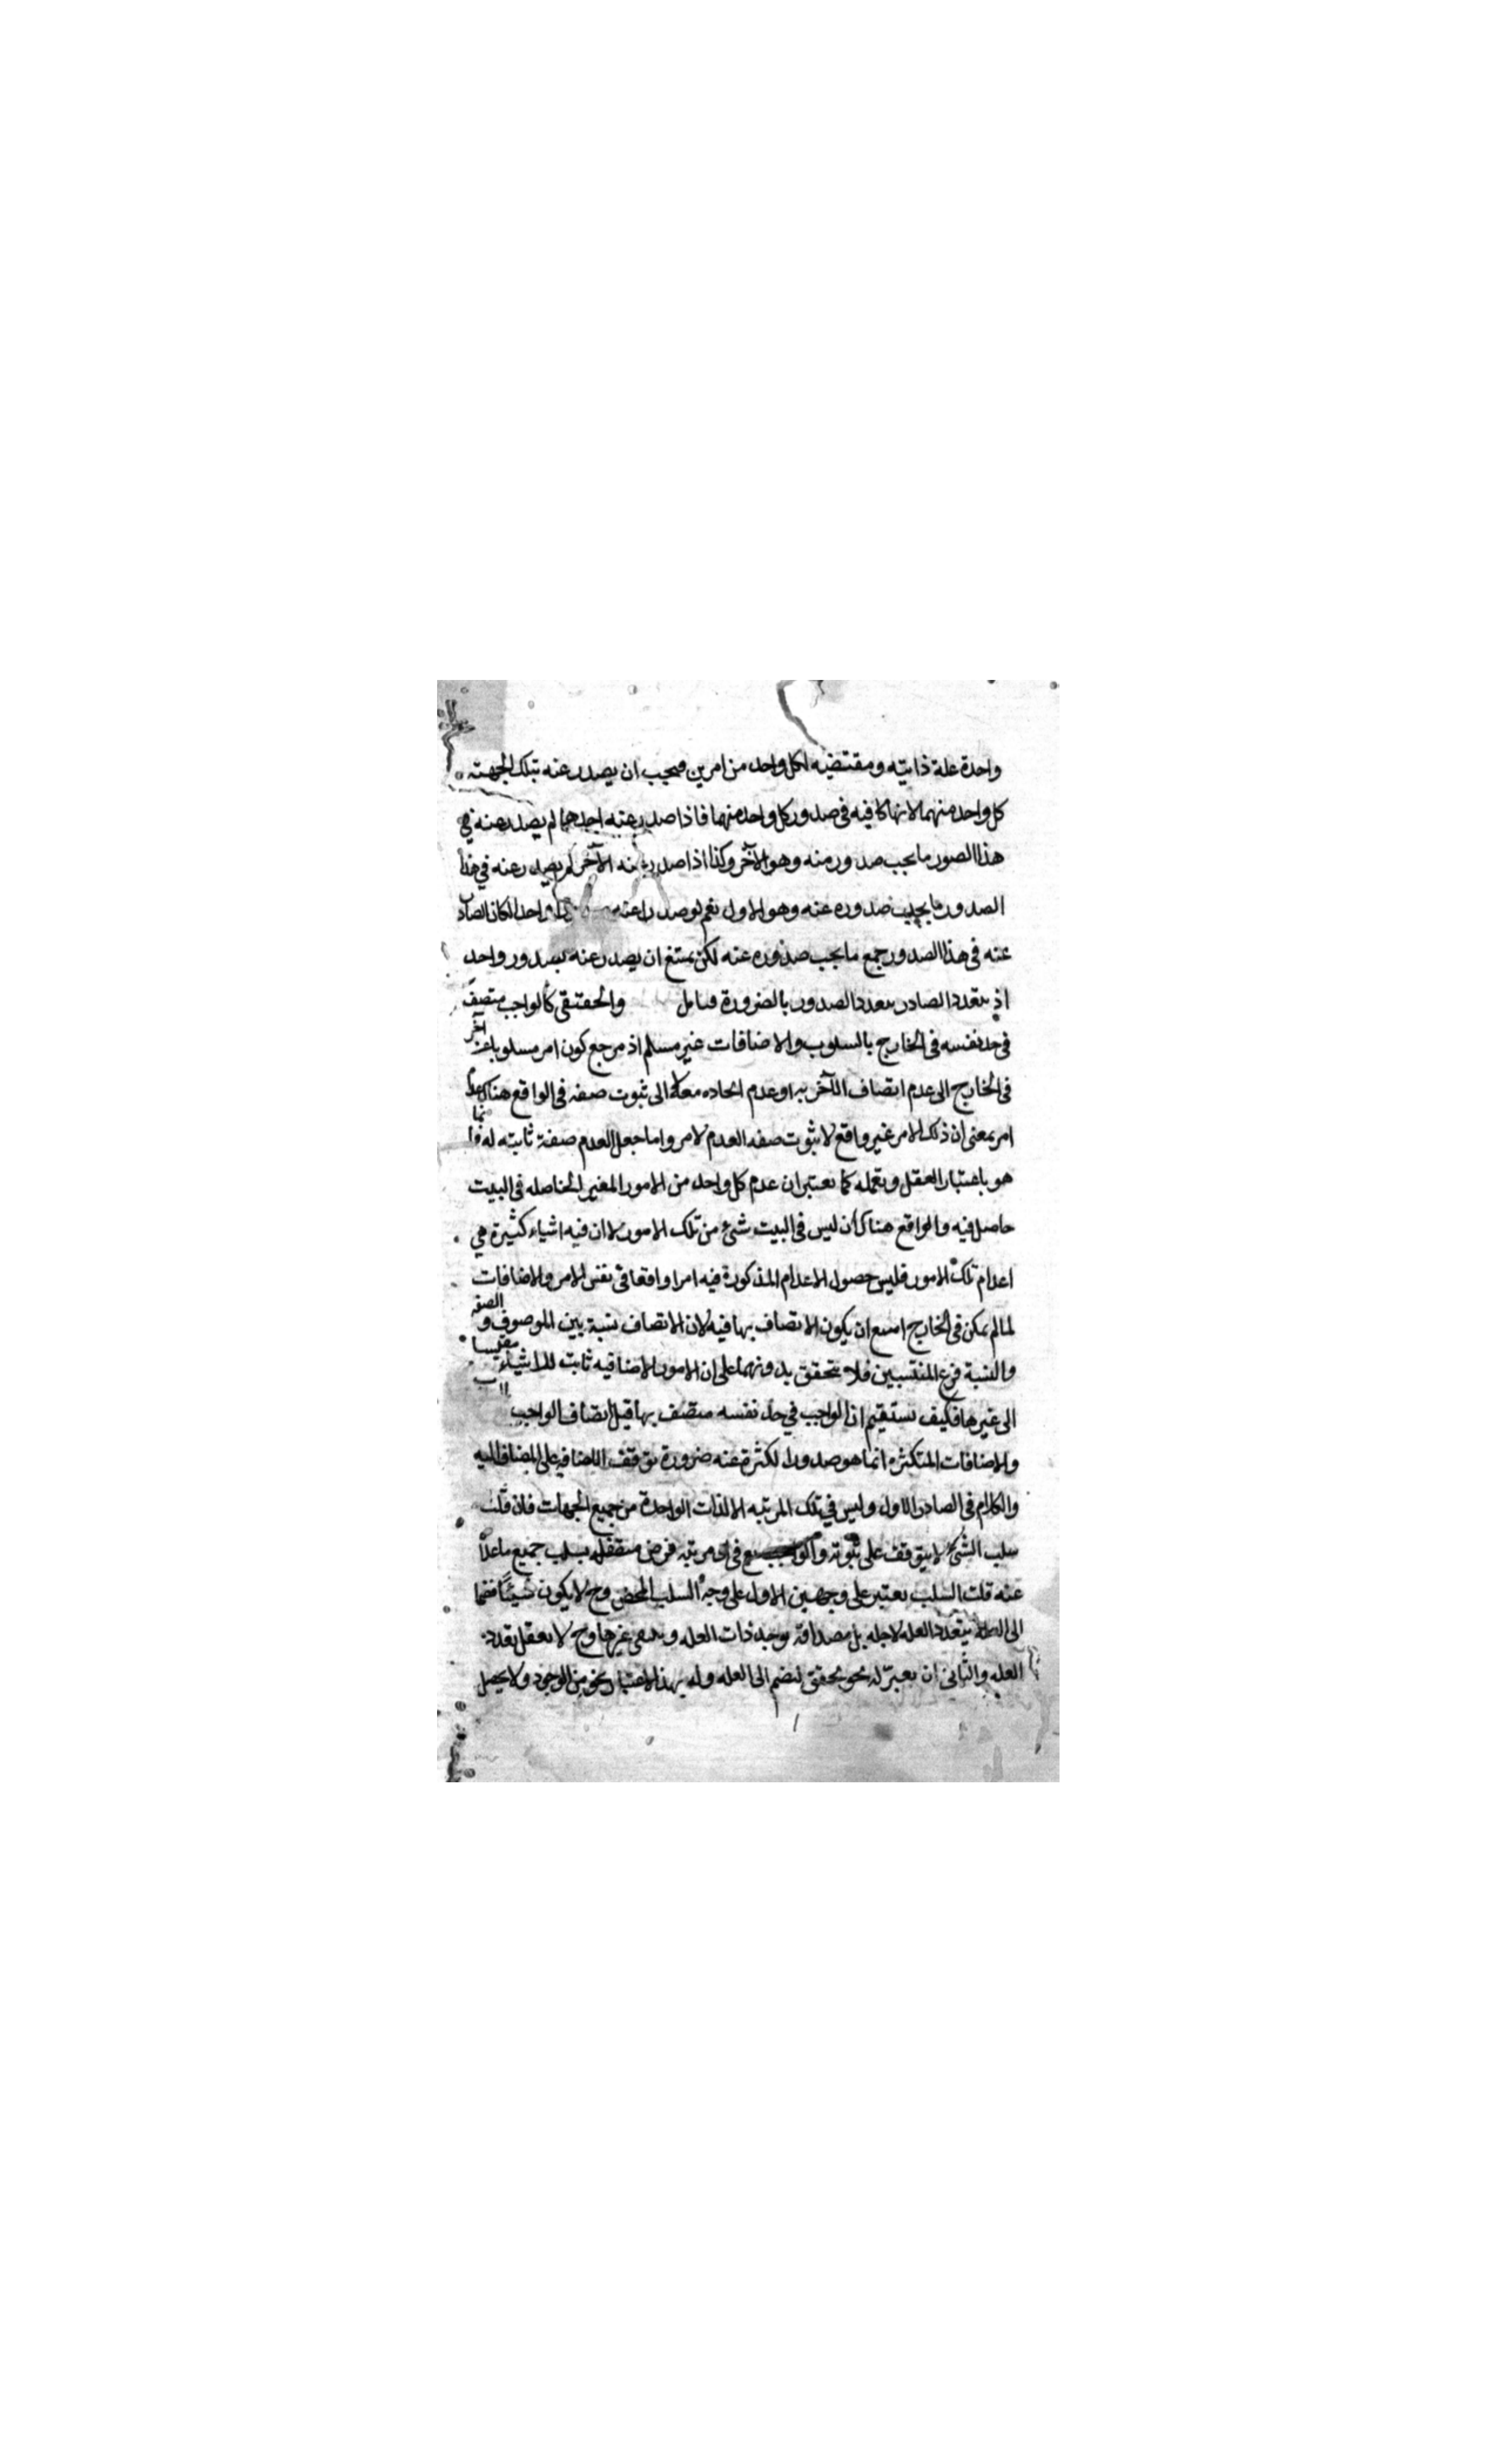 واحدة علة ذاتيته ومقتضيه لكل واحد من امرين فيجب ان يصدر عنه بتلك الجهته
كل واحد منهما لانها كافيه فى صدور كل واحد منهما فاذا صدر عنه احدهما لم يصدر عنه في
هذا الصور ما يجب صدوره منه وهو الآخر وكذا اذا صدر عنه الآخر لم يصدر عنه في هذا
الصدور ما يجب صدوره عنه وهو الاول نعم لو صدرا عنه واحد لكان الصادر
عنه فى هذا الصدور جميع ما يجب صدوره عنه لكن يمتنع ان يصدر عنه بصدور واحد
اذ بتعدد الصادر يتعدد الصدور بالضرورة فتامل والحقيقى كالواجب متصف
فى حد نفسه فى الخارج بالسلوب والاضافات غير مسلم اذ مرجع كون امر مسلوبا عن آخر
فى الخارج الى عدم اتصاف الآخر به او عدم اتحاده معه لا الى ثبوت صفه فى الواقع هناك
امر بمعنى ان ذلك الامر غير واقع لا ثبوت صفه العدم لامر واما جعل العدم صفة ثابته له فانما
هو باعتبار العقل وتعمله كما يعتبر ان عدم كل واحد من الامور الغير الحاصله فى البيت
حاصل فيه والواقع هناك أن ليس فى البيت شئ من تلك الامور لا ان فيه اشياء كثيرة هي
اعدام تلك الامور فليس حصول الاعدام المذكورة فيه امرا واقعا فى نفس الامر والاضافات
لما لم يمكن فى الخارج امتنع ان يكون الاتصاف بها فيه لان الاتصاف نسبة بين الموصوف والصفه
والنسبة فرع المنتسبين فلا يتحقق بدونهما على ان الامور الاضافيه ثابت للاشياء مقيسا
الى غيرها فكيف يستقيم ان الواجب في حد نفسه متصف بها قيل اتصاف الواجب
والاضافات المتكثره انما هو صدور الكثرة عنه ضرورة توقف الاضافيه على المضاف اليه
والكلام فى الصادر الاول وليس في تلك المرتبه الا الذات الواحدة من جميع الجهات فان قلت
سلب الشئ لا يتوقف على ثبوته فى اى مرتبه فرض بسلب جميع ما عداه
عنه قلت السلب يعتبر على وجهين الاول على وجه السلب المحض وح لا يكون شيئا منضما
الى العلة يتعدد العله لاجله بل مصداقه يوجد ذات العله وينفى غيرها وح لا يعقل تعدد
العله والثانى ان يعتبر له نحو تحقق لينضم الى العله وله بهذا الاعتبار نحو من الوجود ولا يحصل